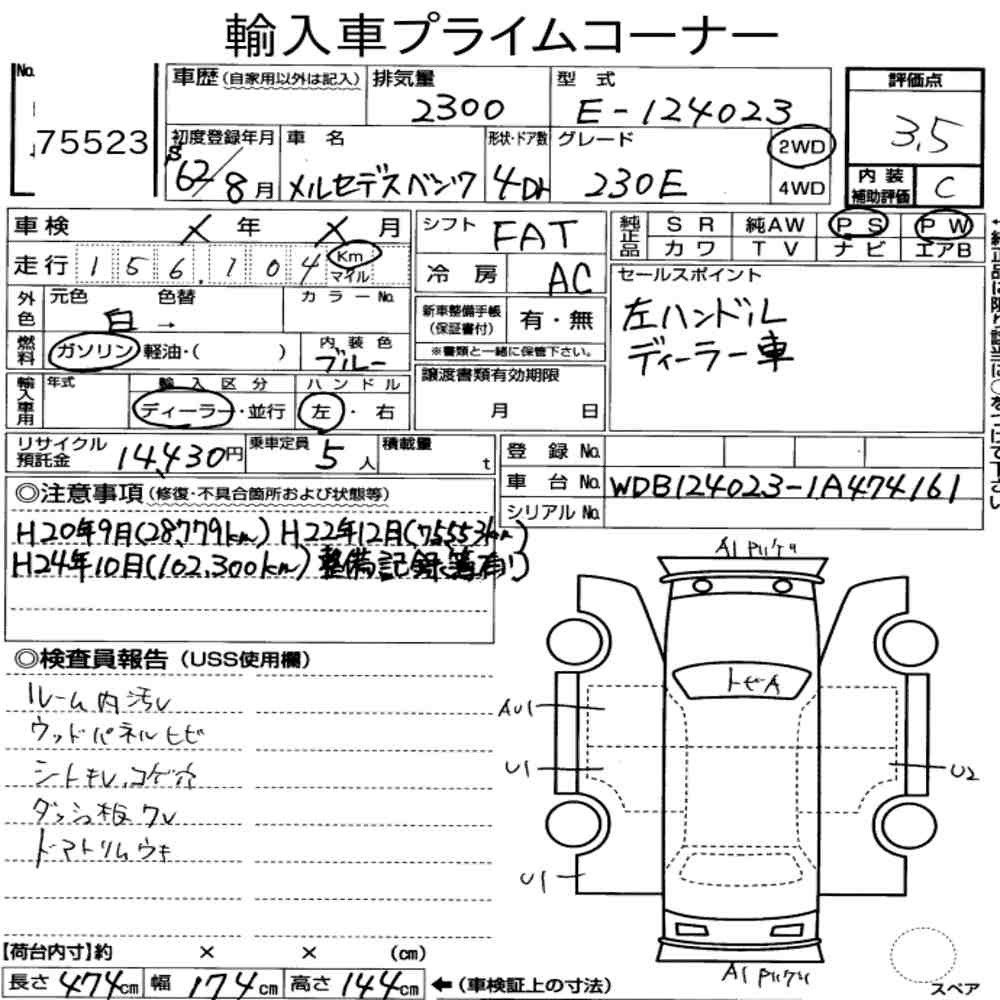 輸入車プライムコーナー
No.
75523
車歴 (自家用以外は記入)
排気量
2300
型式
E-124023
評価点
3.5
初度登録年月
S62/8月
車名
メルセデスベンツ
形状・ドア数
4Dr
グレード
230E
2WD
4WD
内装補助評価
C
車検 / 年 / 月
シフト
FAT
純正品
SR 純AW PS PW
カワ TV ナビ エアB
走行 156,104 Km マイル
冷房
AC
セールスポイント
左ハンドル
ディーラー車
外色
元色 色替 カラーNo.
白 →
新車整備手帳(保証書付)
有・無
※書類と一緒に保管下さい。
燃料
ガソリン・軽油・( )
内装色
ブルー
譲渡書類有効期限
月 日
輸入車用
年式
輸入区分
ディーラー・並行
ハンドル
左・右
リサイクル預託金
14,430円
乗車定員
5人
積載量
t
登録No.
車台No.
WDB124023-1A474161
シリアルNo.
◎注意事項 (修復・不具合箇所および状態等)
H20年9月(28,779km) H22年12月(75553km)
H24年10月(102,300km) 整備記録簿有り
◎検査員報告 (USS使用欄)
ルーム内汚レ
ウッドパネルヒビ
シートキレ、コゲ穴
ダッシュ板ワレ
ドアトリムウキ
A1
トビA
AU1
U1
U2
U1
A1
スペア
【荷台内寸】約 × × (cm)
長さ 474cm 幅 174cm 高さ 144cm ←(車検証上の寸法)